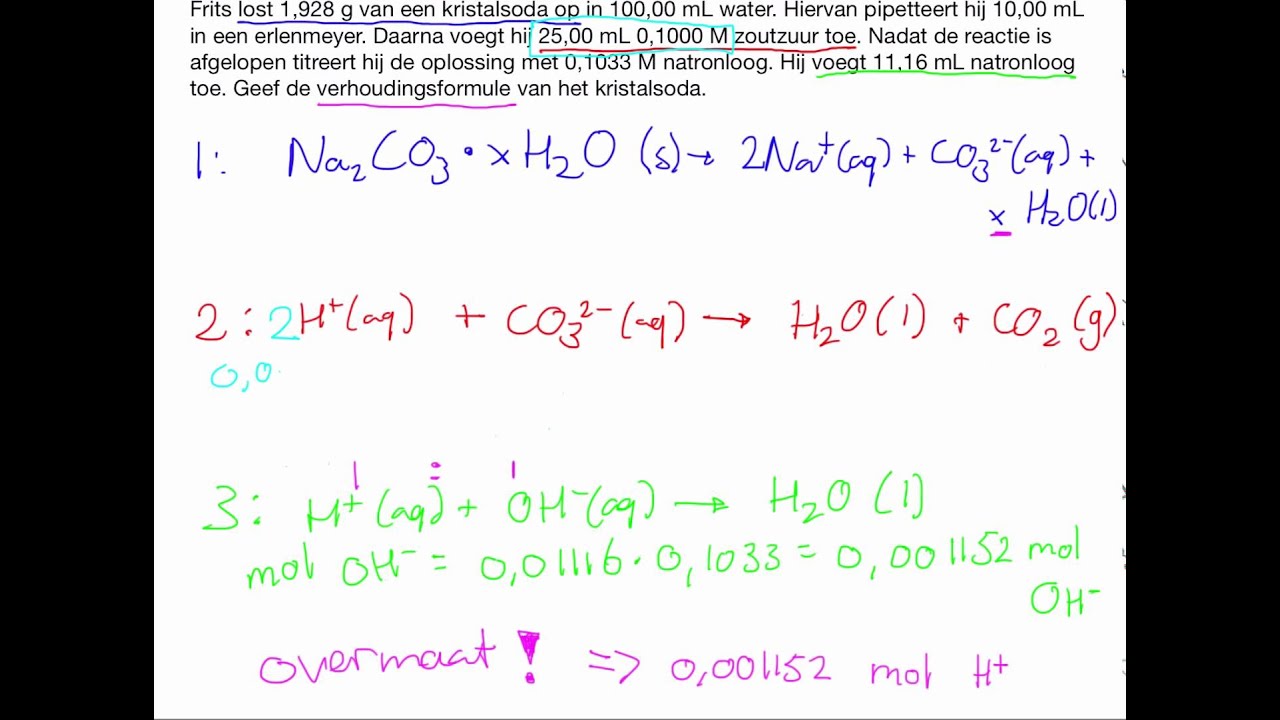 Frits lost 1,928 g van een kristalsoda op in 100,00 mL water. Hiervan pipetteert hij 10,00 mL
in een erlenmeyer. Daarna voegt hij 25,00 mL 0,1000 M zoutzuur toe. Nadat de reactie is
afgelopen titreert hij de oplossing met 0,1033 M natronloog. Hij voegt 11,16 mL natronloog
toe. Geef de verhoudingsformule van het kristalsoda.
1: Na₂CO₃ • x H₂O (s) → 2Na⁺(aq) + CO₃²⁻(aq) +
x H₂O(l)
2: 2H⁺(aq) + CO₃²⁻(aq) → H₂O(l) + CO₂(g)
0,0
1 : 1
3: H⁺(aq) + OH⁻(aq) → H₂O(l)
mol OH⁻ = 0,01116 · 0,1033 = 0,001152 mol
OH⁻
overmaat! => 0,001152 mol H⁺